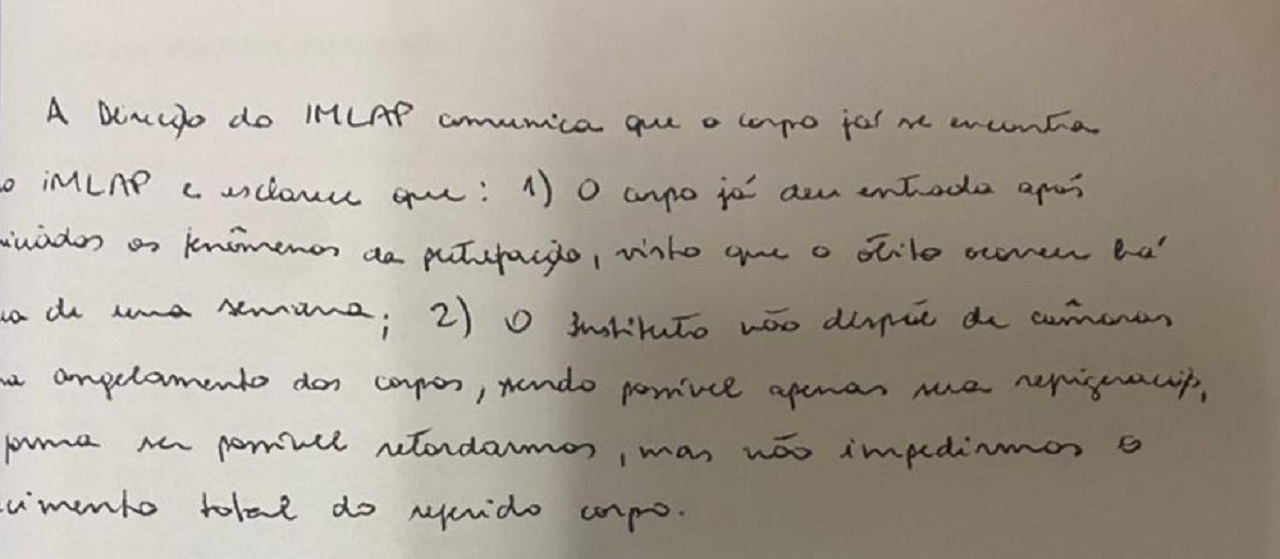 A Direcção do IMLAP comunica que o corpo já se encontra
o iMLAP e esclarece que: 1) O corpo já deu entrada após
iniciados os fenômenos da putrefacção, visto que o óbito ocorreu há
de uma semana; 2) O Instituto não dispõe de câmaras
congelamento dos corpos, sendo possível apenas sua refrigeração,
forma ser possível retardarmos, mas não impedirmos o
cimento total do referido corpo.